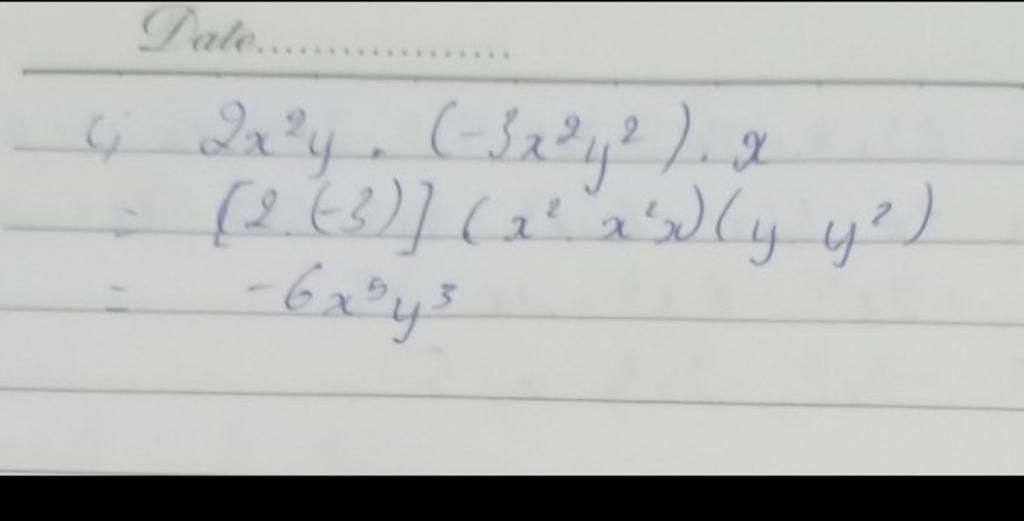 Date..................
c) 2x²y . (-3x²y²) . x
= [2.(-3)] (x² x²x)(y y²)
= -6x⁵y³